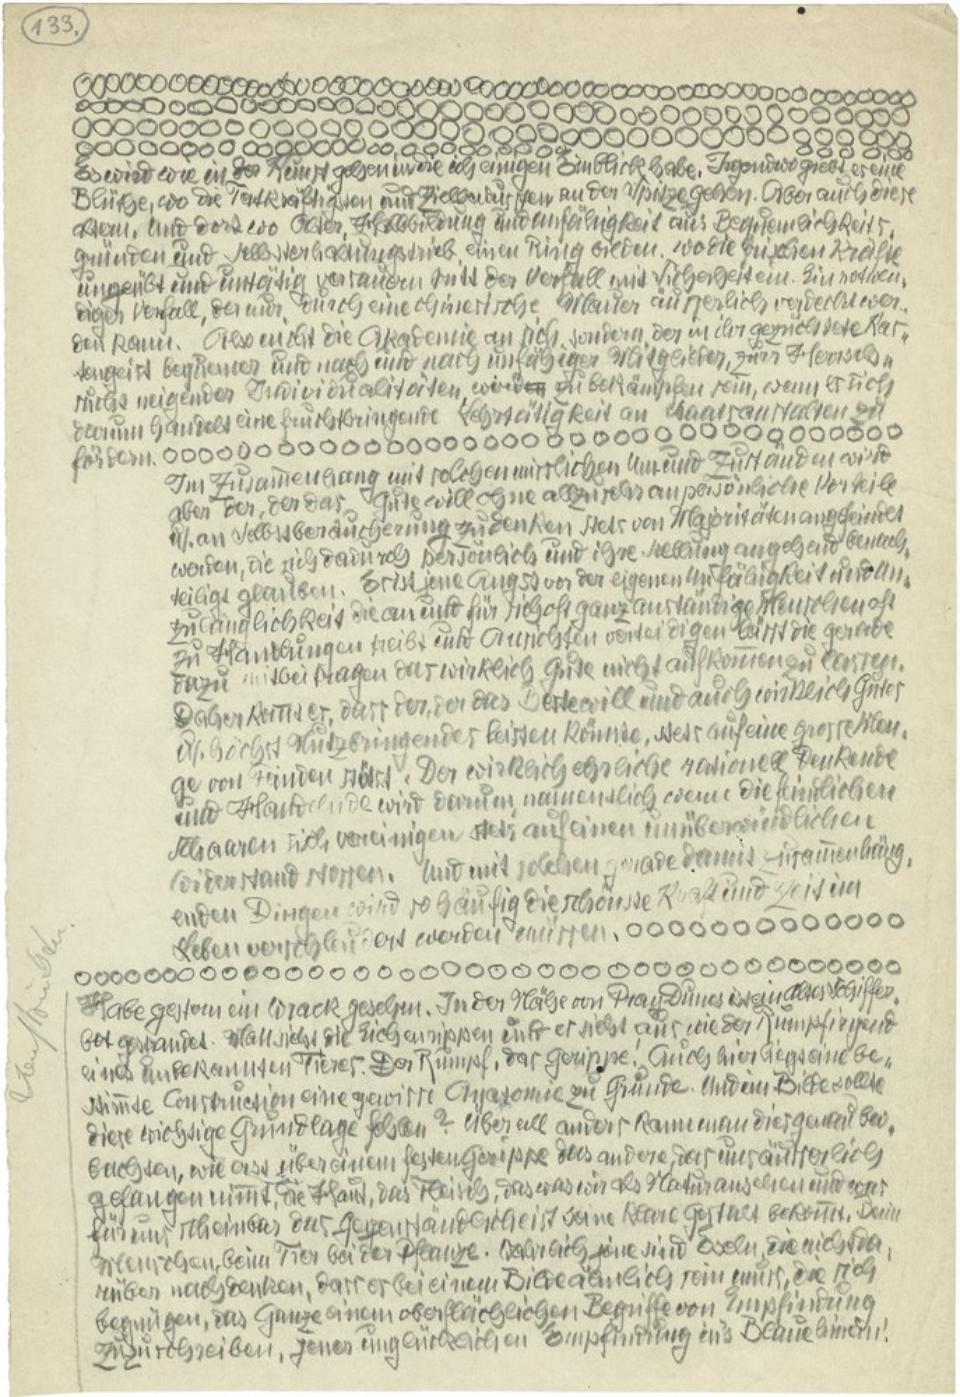 133.
Es wird wie in der Kunst gehen in die ich einigen Einblick habe. Irgendwo giebt es eine
Blüthe, wo die Tatkräftigsten und Zielbewussten an der Spitze gehen. Aber auch diese
altern. Und dort wo Alter, Halbbildung und Unfähigkeit aus Bequemlichkeits-
gründen und Selbsterhaltungstrieb einen Ring bilden, wo die frischen Kräfte
ungeübt und untätig versauern tritt der Verfall mit Sicherheit ein. Ein notwen-
diger Verfall, der nur durch eine chinesische Mauer äusserlich verdeckt wer-
den kann. Also nicht die Akademie an sich, sondern der in ihr gezüchtete Kas-
tengeist bequemer und nach und nach unfähiger Mitglieder, zur Herrsch-
sucht neigender Individualitäten, wird zu bekämpfen sein, wenn es sich
darum handelt eine fruchtbringende Lehrtätigkeit an Staatsanstalten zu
fördern.
Im Zusammenhang mit solchen misslichen Um und Zuständen wird
aber der, der das Gute will ohne allzusehr an persönliche Vorteile
u. an Selbstberäucherung zu denken stets von Majoritäten angefeindet
werden, die sich dadurch persönlich und ihre Stellung angehend benach-
teiligt glauben. Es ist jene Angst vor der eigenen Unfähigkeit und Un-
zulänglichkeit die an und für sich oft ganz anständige Menschen oft
zu Handlungen treibt und Ansichten verteidigen lässt die gerade
dazu mitbeitragen das wirklich Gute nicht aufkommen zu lassen.
Daher kommt es, dass der, der das Beste will und auch wirklich Gutes
u. höchst Nutzbringendes leisten könnte, stets auf eine grosse Men-
ge von Feinden stösst. Der wirklich ehrliche rationell Denkende
und Handelnde wird darum, namentlich wenn die feindlichen
Scharen sich vereinigen stets auf einen unüberwindlichen
Widerstand stossen. Und mit solchen gerade damit zusammenhäng-
enden Dingen wird so häufig die schönste Kraft und Zeit im
Leben verschleudert werden müssen.
Habe gestern ein Wrack gesehen. In der Nähe von Bray Dunes ist ein altes Schiffer-
bot gestrandet. Man sieht die Eichenrippen und es sieht aus wie der Rumpf irgend
eines unbekannten Tieres. Der Rumpf, das Gerippe! Auch hier liegt eine be-
stimmte Construction eine gewisse Anatomie zu Grunde. Und im Bilde sollte
diese wichtige Grundlage fehlen? Überall anders kann man dies genau beo-
bachten, wie erst über einem festen Gerippe das andere, das uns äusserlich
gefangen nimmt, die Haut, das Fleisch, das was wir als Natur ansehen und was
für uns scheinbar das Gegenständliche ist seine klare Gestalt bekommt. Beim
Menschen, beim Tier bei der Pflanze. Wahrlich jene sind Eseln, die nicht da-
rüber nachdenken, dass es bei einem Bilde ähnlich sein muss, die sich
begnügen, das Ganze einem oberflächlichen Begriffe von Empfindung
zuzuschreiben, jener unglücklichen Empfindung in's Blaue hinein!